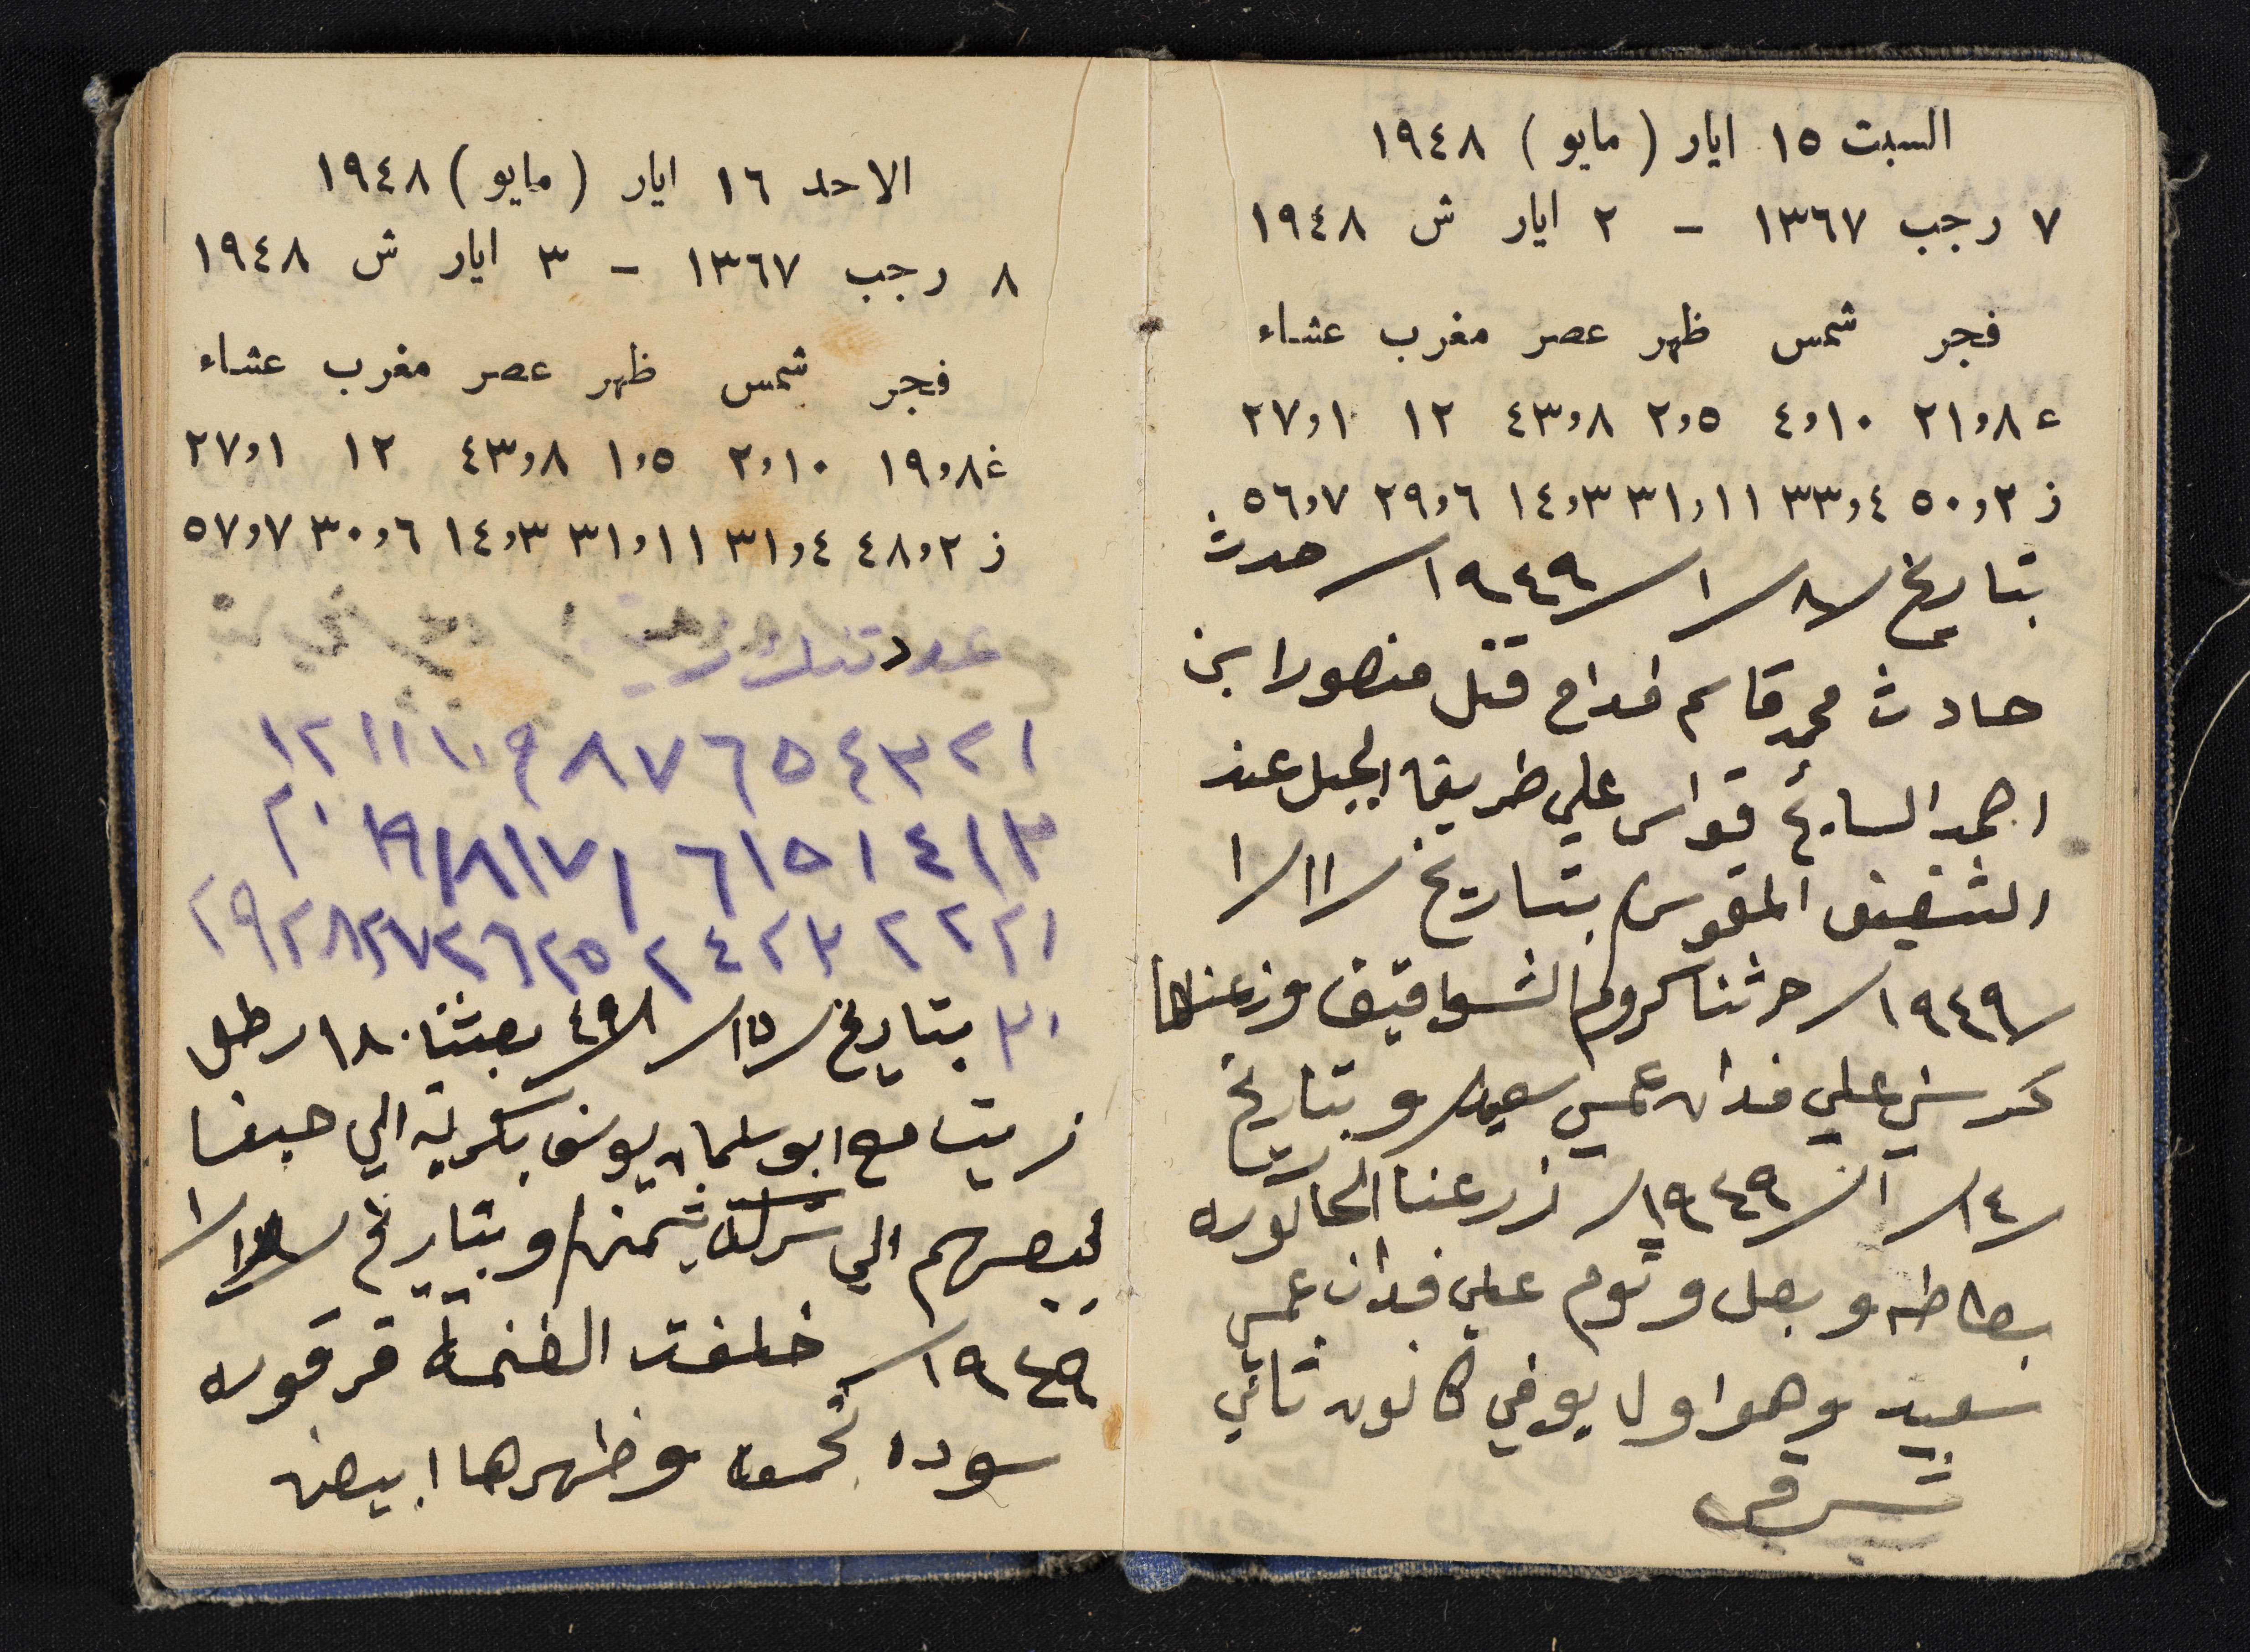 السبت ١٥ ايار (مايو) ١٩٤٨
٧ رجب ١٣٦٧ - ٢ ايار ش ١٩٤٨
فجر شمس ظهر عصر مغرب عشاء
ع ٢١،٨ ٤،١٠ ٢،٥ ٤٣،٨ ١٢ ٢٧،١
ز ٥٠،٢ ٣٣،٤ ٣١،١١ ١٤،٣ ٢٩،٦ ٥٦،٧
بتاريخ /٨/ ١/ ١٩٤٩/ حدث
حادث محمد قاسم قداح قتل منصور ابن
احمد السايح قواس علي طريق الجبل عند
الشقيف المقوس بتاريخ /١١/ ١
/١٩٤٩/ حرثنا كروم الشواقيف وزرعناها
كرسني علي فدان عمي سعيد وبتاريخ
/١٤/ ١/ ١٩٤٩/ زرعنا الحاكوره
بطاطه وبصل وتوم علي فدان عمي
سعيد وهو اول يوم في كانون تاني
شرقي
الاحد ١٦ ايار (مايو) ١٩٤٨
٨ رجب ١٣٦٧ - ٣ ايار ش ١٩٤٨
فجر شمس ظهر عصر مغرب عشاء
ع ١٩،٨ ٢،١٠ ١،٥ ٤٣،٨ ١٢ ٢٧،١
ز ٤٨،٢ ٣١،٤ ٣١،١١ ١٤،٣ ٣٠،٦ ٥٧،٧
عدد تنك زيت
١ ٢ ٣ ٤ ٥ ٦ ٧ ٨ ٩ ١٠ ١١ ١٢
١٣ ١٤ ١٥ ١٦ ١٧ ١٨ ١٩ ٢٠
٢١ ٢٢ ٢٣ ٢٤ ٢٥ ٢٦ ٢٧ ٢٨ ٢٩
٣٠ بتاريخ /١٥/ ١/ ٤٩/ بعثنا ١٨٠ رطل
زيت مع ابو سلمان يوسف بكريه الي حيفا
ليبعهم الي شركة شيمن وبتاريخ /١٨/ ١
/١٩٤٩ خلفت الغنمة قرقوره
سوده وظهرها ابيض